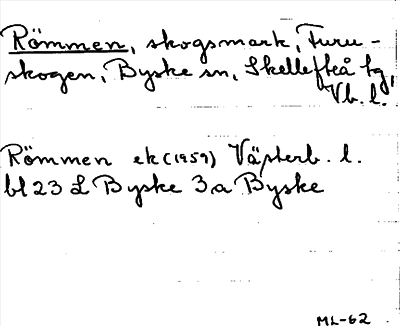 Römmen, skogsmark, Furu-
skogen, Byske sn, Skellefteå tg,
Vb. l.
Römmen ek (1959) Västerb. l.
bl 23 L Byske 3a Byske
ML-62